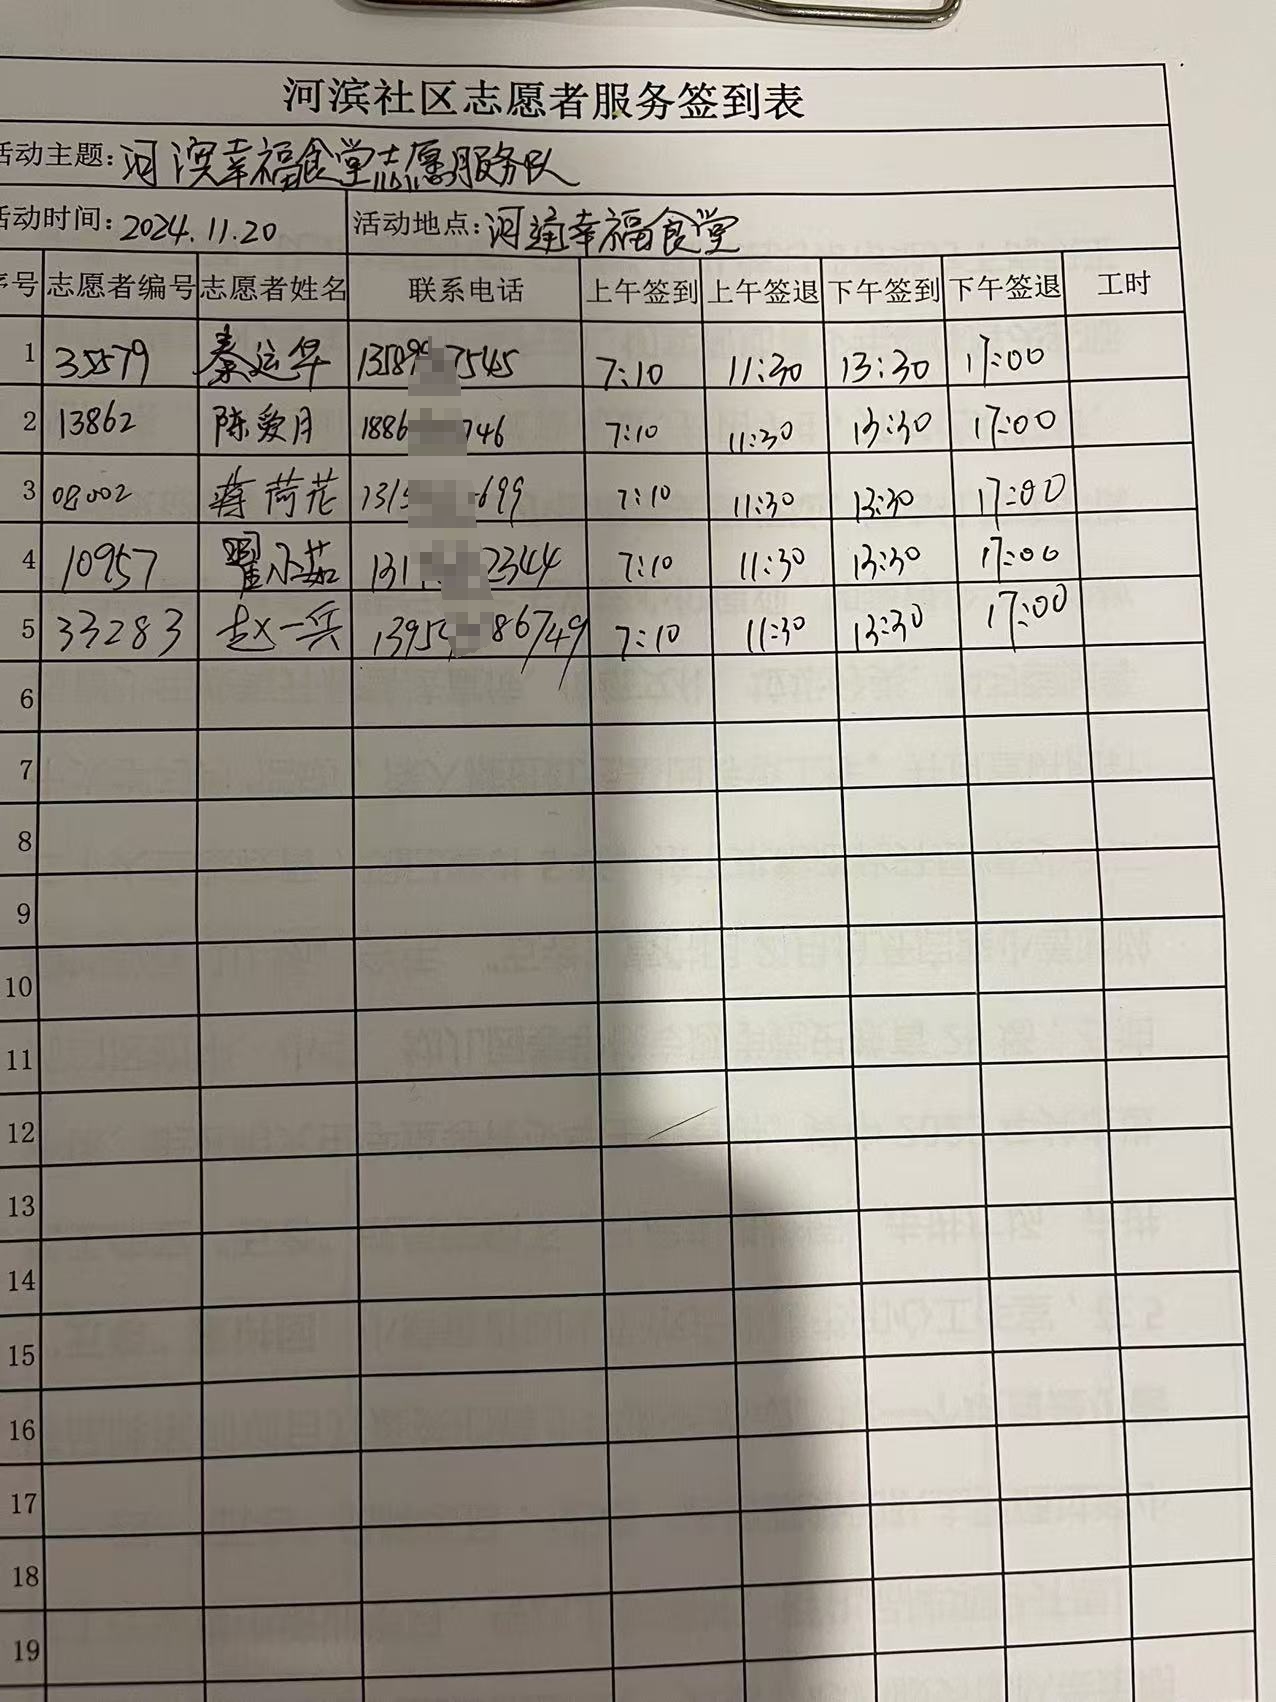 河滨社区志愿者服务签到表
活动主题：河滨幸福食堂志愿服务队
活动时间：2024.11.20 活动地点：河滨幸福食堂
序号 志愿者编号 志愿者姓名 联系电话 上午签到 上午签退 下午签到 下午签退 工时
1 35579 秦运华 13589 7545 7:10 11:30 13:30 17:00
2 13862 陈爱月 1886 746 7:10 11:30 13:30 17:00
3 08002 蒋荷花 1315 699 7:10 11:30 13:30 17:00
4 10957 翟小茹 131 2344 7:10 11:30 13:30 17:00
5 33283 赵一兵 1395 86749 7:10 11:30 13:30 17:00
6
7
8
9
10
11
12
13
14
15
16
17
18
19